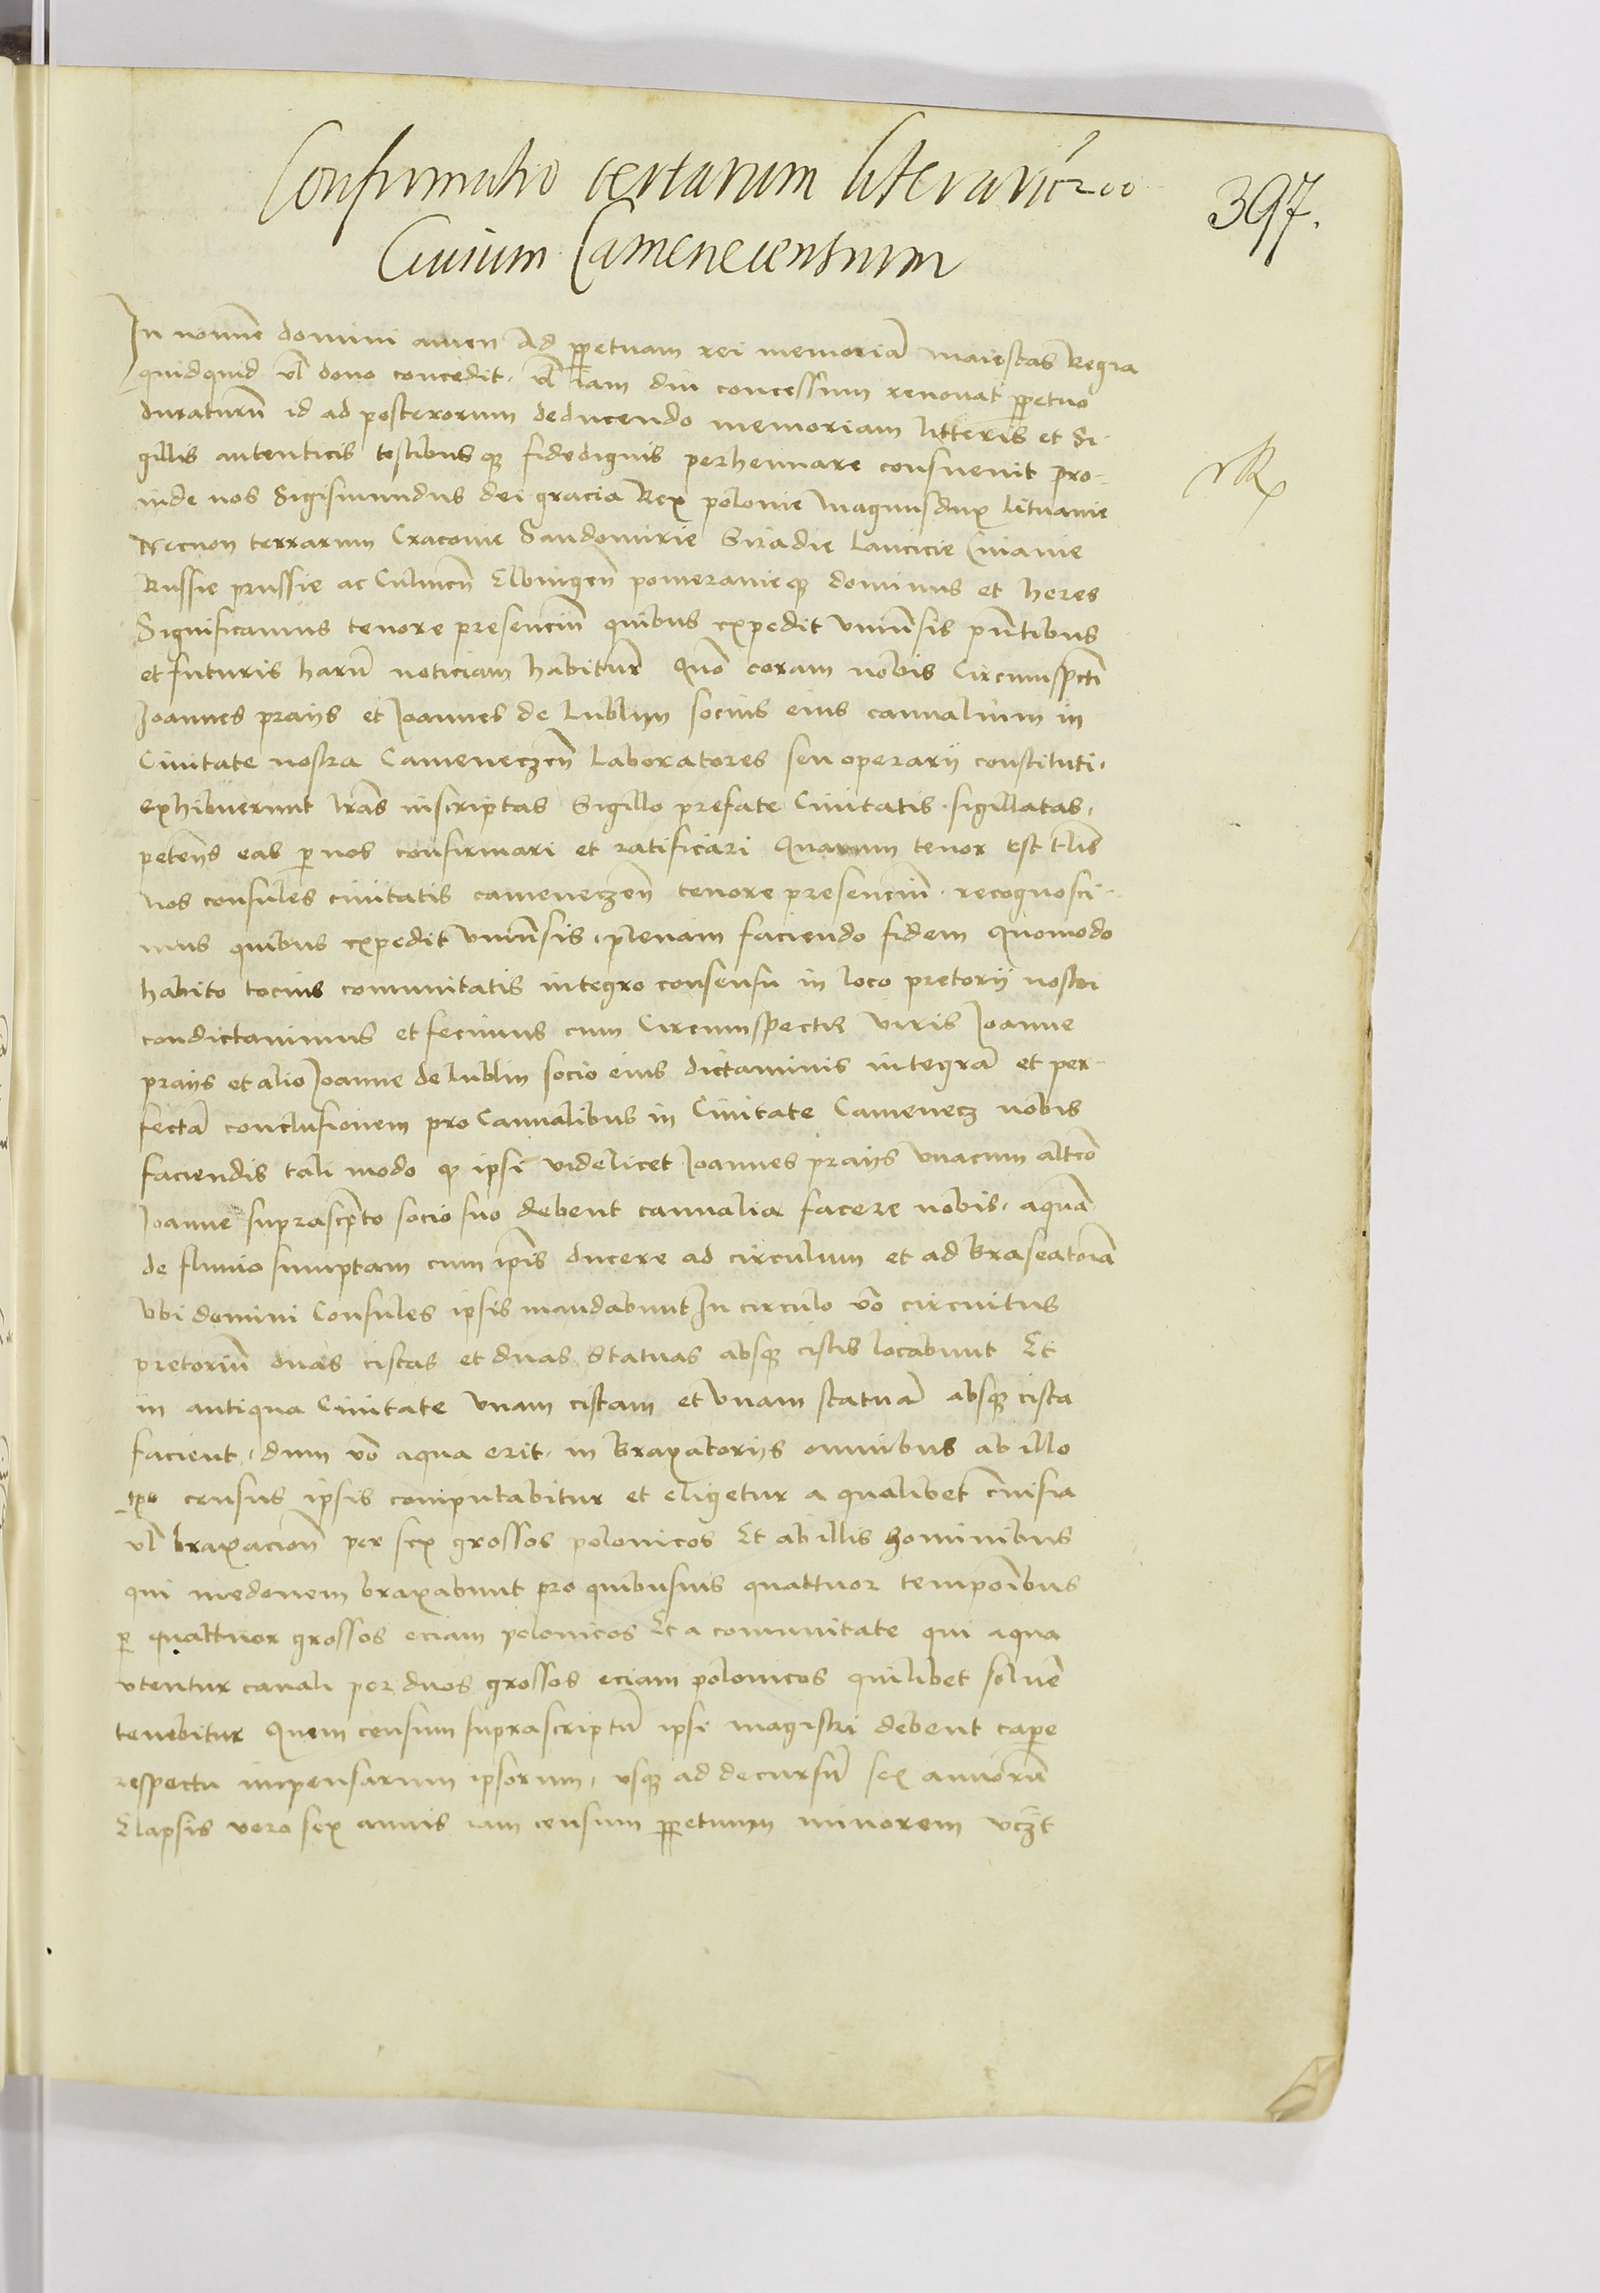 Confirmatio certarum literarũ
Ciuium Camenecensium
397.
In nomine domini amen Ad ppetuam rei memoriã maiestas Regia
quidquid vl dono concedit. vl iam diu concessum renouat ppetuo
duraturũ id ad posterorum deducendo memoriam litteris et Si-
gillis autenticis testibusq fidedignis perhennare consueuit pro-
inde nos Sigismundus dei gracia Rex polonie magnusdux lituanie
Necnon terrarum Cracouie Sandomirie Siradie lancicie Cuiauie
Russie prussie ac Culmeñ Elbingeñ pomeranieq dominus et heres
Significamus tenore presenciũ quibus expedit vniuersis pñtibus
et futuris harũ noticiam habiturˉ Quõ coram nobis Circumspcti
Joannes prays et Joannes de lublyn socius eius cannalium in
Ciuitate nostra Cameneczeñ laboratores seu operarij constituti.
exhibuerunt lras inscriptas Sigillo prefate Ciuitatis sigillatas.
petens eas p nos confirmari et ratificari Quarum tenor est tlis
Nos consules ciuitatis cameneczeñ tenore presenciũ recognosci-
mus quibus expedit vniuersis, plenam faciendo fidem Quomodo
habito tocius comunitatis integro consensu in loco pretorij nostri
condictauimus et fecimus cum Circumspectis viris Joanne
prays et alio Joanne de lublin socio eius dictaminis integrã et per-
fectã conclusionem pro Cannalibus in Ciuitate Camenecz nobis
faciendis tali modo q ipsi videlicet Joannes prays vnacum altero
Joanne suprascpto socio suo debent cannalia facere nobis. aquã
de fluuio sumptam cum ipis ducere ad circulum et ad braseatoria
vbi domini Consules ipsis mandabunt In circulo vo circuitus
pretoriũ duas cistas et duas statuas absq cistis locabunt Et
in antiqua Ciuitate vnam cistam et vnam statuã absq cista
facient. dum vo aqua erit. in braxatorijs omnibus ab illo
tpe census ipsis computabitur et eligetur a qualibet ceruisia
vl braxacioñ per sex grossos polonicos Et ab illis hominibus
qui medonem braxabunt pro quibusuis quattuor temporibus
p quattuor grossos eciam polonicos Et a comunitate qui aqua
vtentur canali per duos grossos eciam polonicos quilibet soluẽ
tenebitur Quem censum suprascriptũ ipsi magistri debent capẽ
respectu impensarum ipsorum, vsq ad decursũ sex annorũ
Elapsis vero sex annis iam censum ppetuum minorem vczt